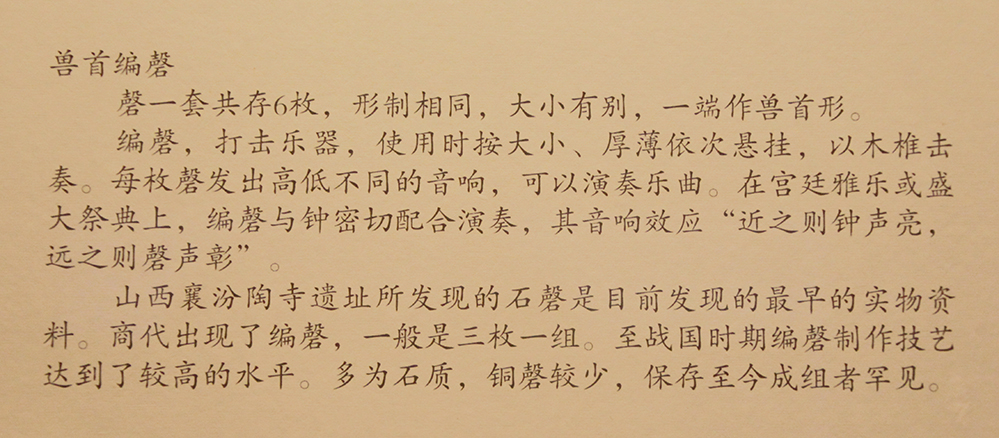 兽首编磬
磬一套共存6枚，形制相同，大小有别，一端作兽首形。
编磬，打击乐器，使用时按大小、厚薄依次悬挂，以木椎击
奏。每枚磬发出高低不同的音响，可以演奏乐曲。在宫廷雅乐或盛
大祭典上，编磬与钟密切配合演奏，其音响效应“近之则钟声亮，
远之则磬声彰”。
山西襄汾陶寺遗址所发现的石磬是目前发现的最早的实物资
料。商代出现了编磬，一般是三枚一组。至战国时期编磬制作技艺
达到了较高的水平。多为石质，铜磬较少，保存至今成组者罕见。